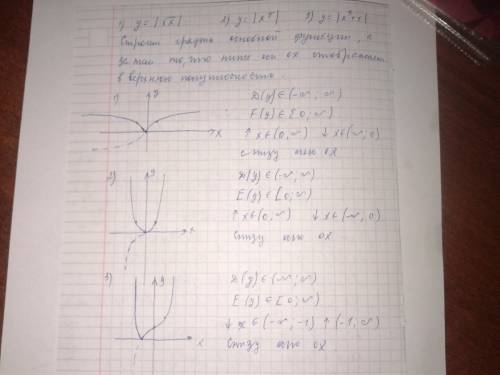 1) y = |√x|   2) y = |x⁵|   3) y = |x⁴+x|
Строим график основной функции, а
затем то, что ниже оси ox отображаем
в верхнюю полуплоскость.
1) y
x
D(y) ∈ (-∞, ∞)
E(y) ∈ [0; ∞)
↑ x ∈ (0, ∞) ↓ x ∈ (-∞; 0)
снизу ox
2) y
x
D(y) ∈ (-∞; ∞)
E(y) ∈ [0; ∞)
↑ x ∈ (0, ∞) ↓ x ∈ (-∞, 0)
снизу ox
3) y
x
D(y) ∈ (-∞; ∞)
E(y) ∈ [0; ∞)
↓ x ∈ (-∞; -1) ↑ (-1, ∞)
снизу ox